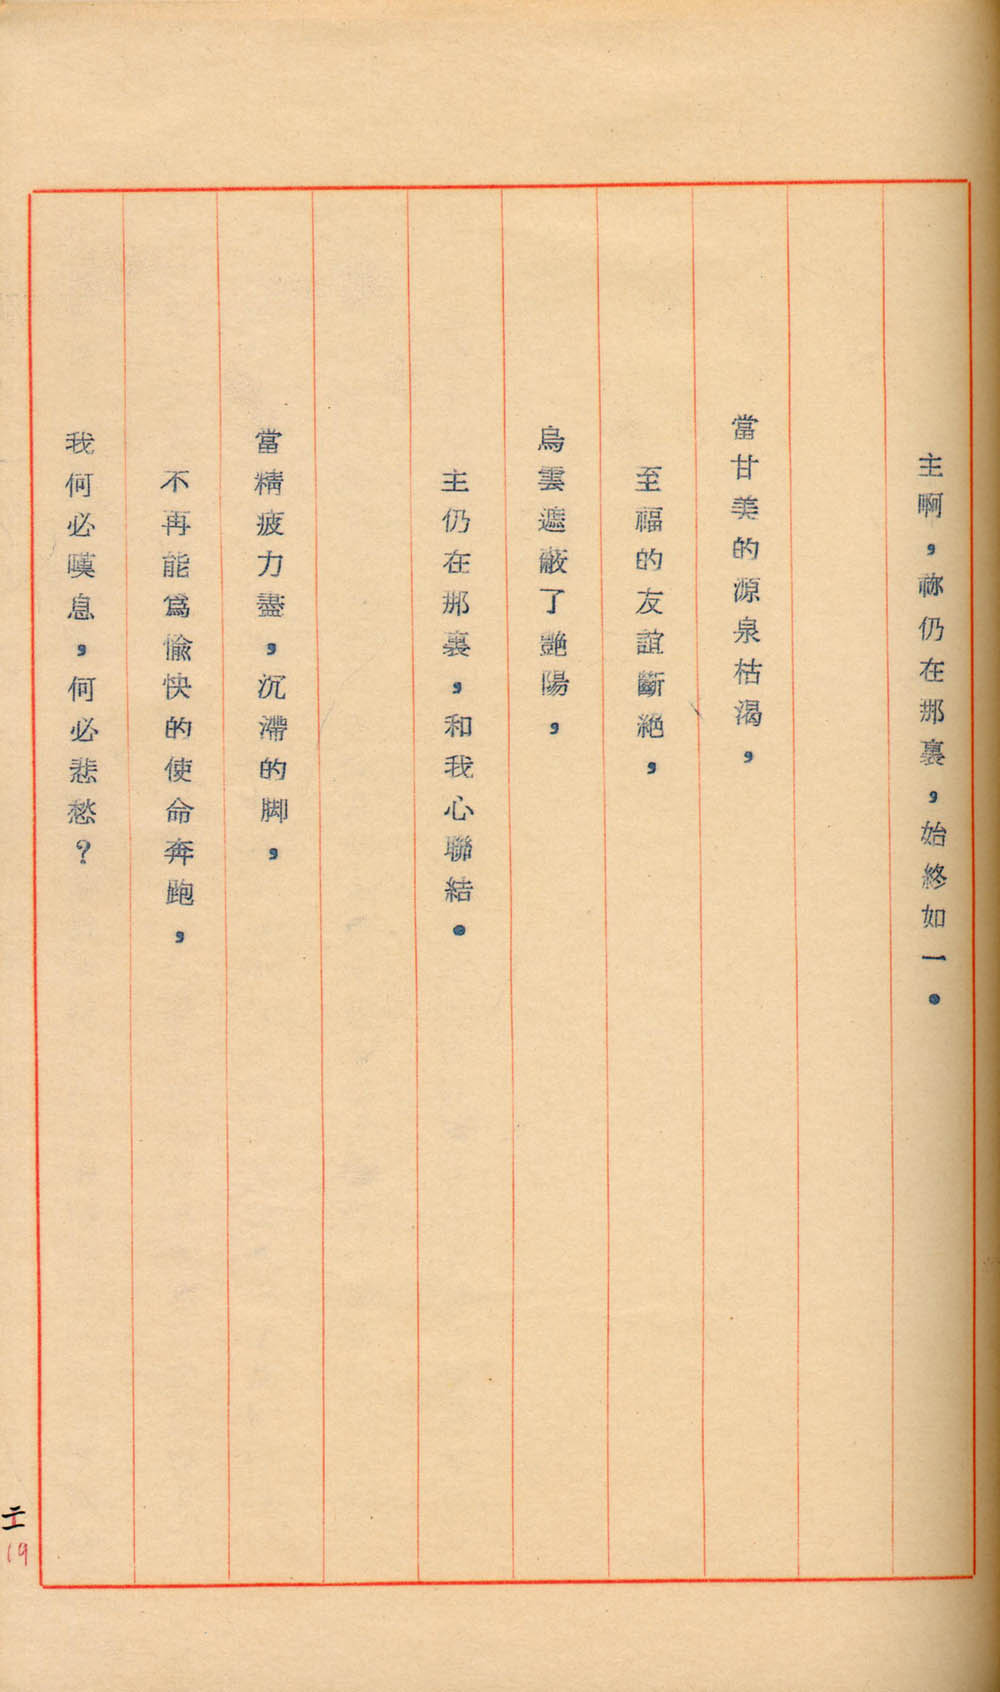 主啊，祢仍在那裏，始終如一。
當甘美的源泉枯渴，
至福的友誼斷絕，
烏雲遮蔽了艷陽，
主仍在那裏，和我心聯結。
當精疲力盡，沉滯的脚，
不再能爲愉快的使命奔跑，
我何必嘆息，何必悲愁？
19